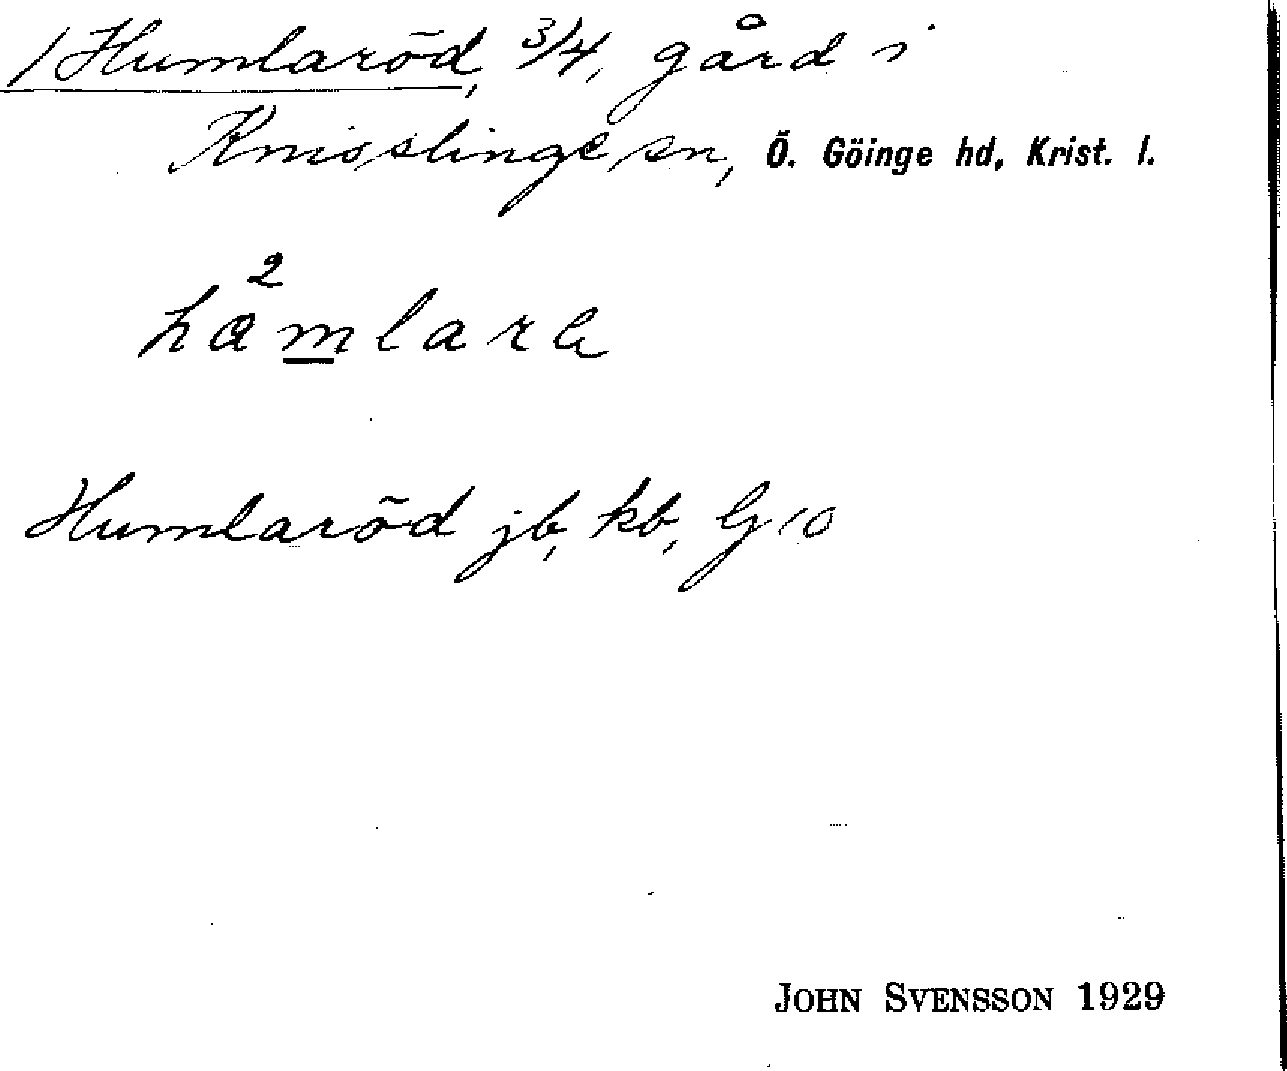 1 Humlaröd, 3/4, gård i
Knisslinge sn, Ö. Göinge hd, Krist. l.
2
Humlaröd jb, kb, Gj 10
JOHN SVENSSON 1929